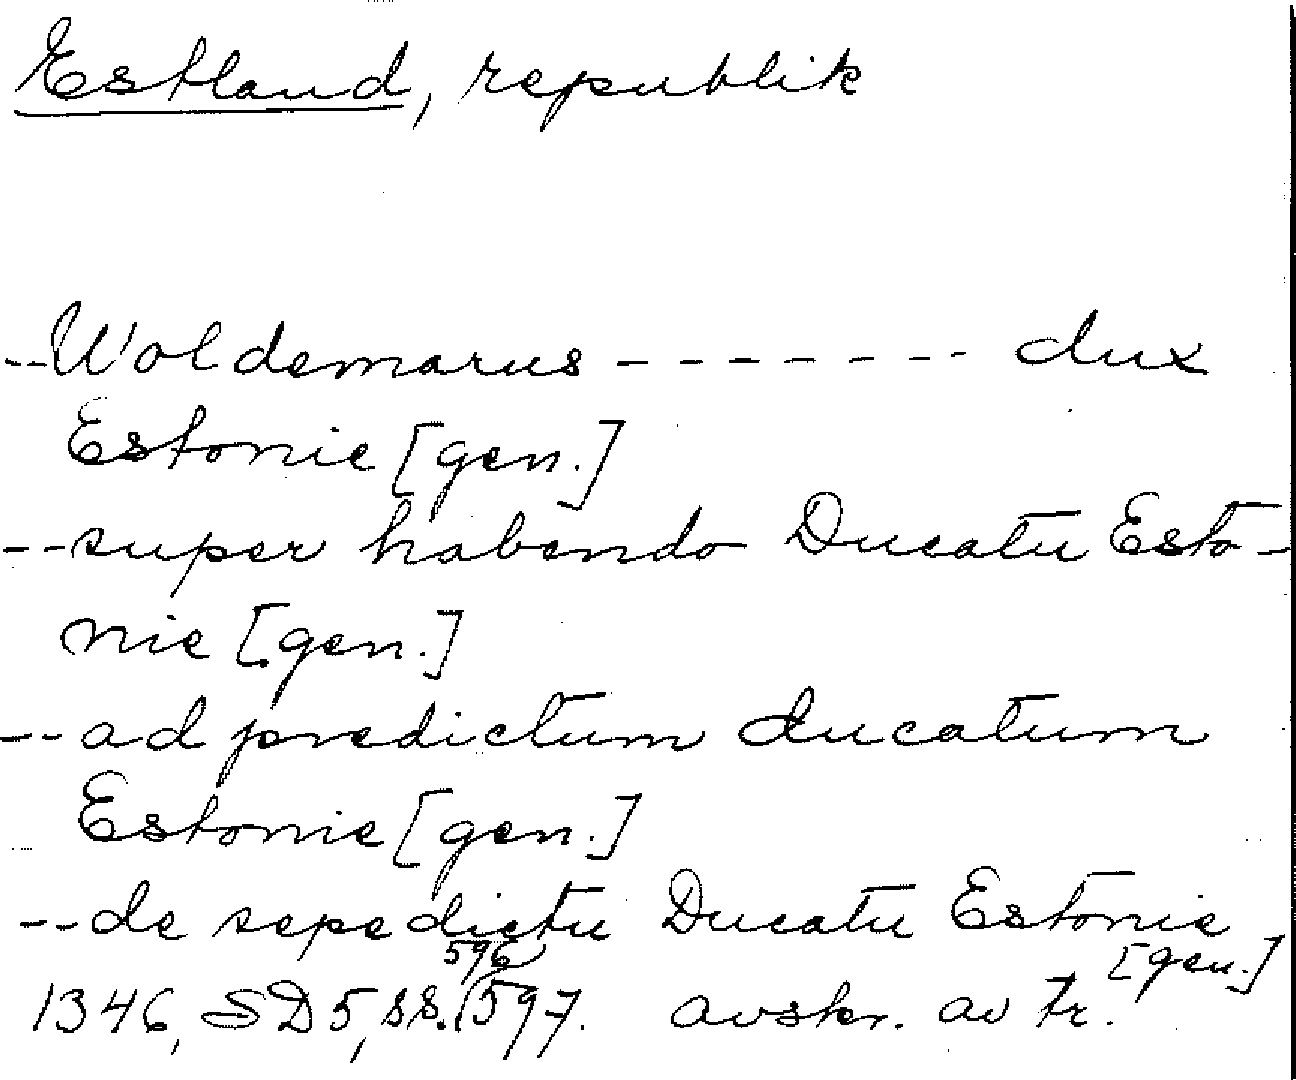 Estland, republik
--Woldemarus ------- dux
Estonie [gen.]
--super habendo Ducatu Esto-
nie [gen.]
--ad predictum ducatum
Estonie [gen.]
--de sepedictu Ducatu Estonie
[gen.]
596
1346, SD5, ss. 597. avskr. av tr.